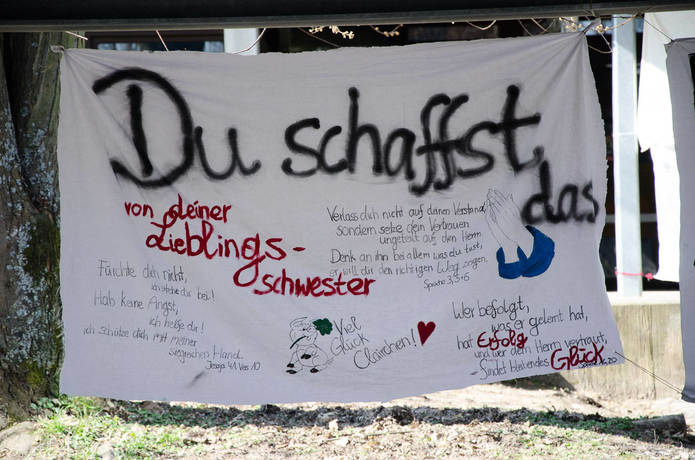 Du schaffst
das
von deiner
Lieblings-
schwester
Verlass dich nicht auf deinen Verstand
Sondern setze dein Vertrauen
ungeteilt auf den Herrn
Denk an ihn bei allem was du tust,
er wird dir den richtigen Weg zeigen.
Sprüche 3,5+6
Fürchte dich nicht,
ich stehe dir bei!
Hab keine Angst,
ich helfe dir!
ich schütze dich mit meiner
siegreichen Hand
Jesaja 41 Vers 10
Viel
Glück
Clairchen!
Wer befolgt,
was er gelernt hat,
hat Erfolg
und wer dem Herrn vertraut,
findet bleibendes Glück